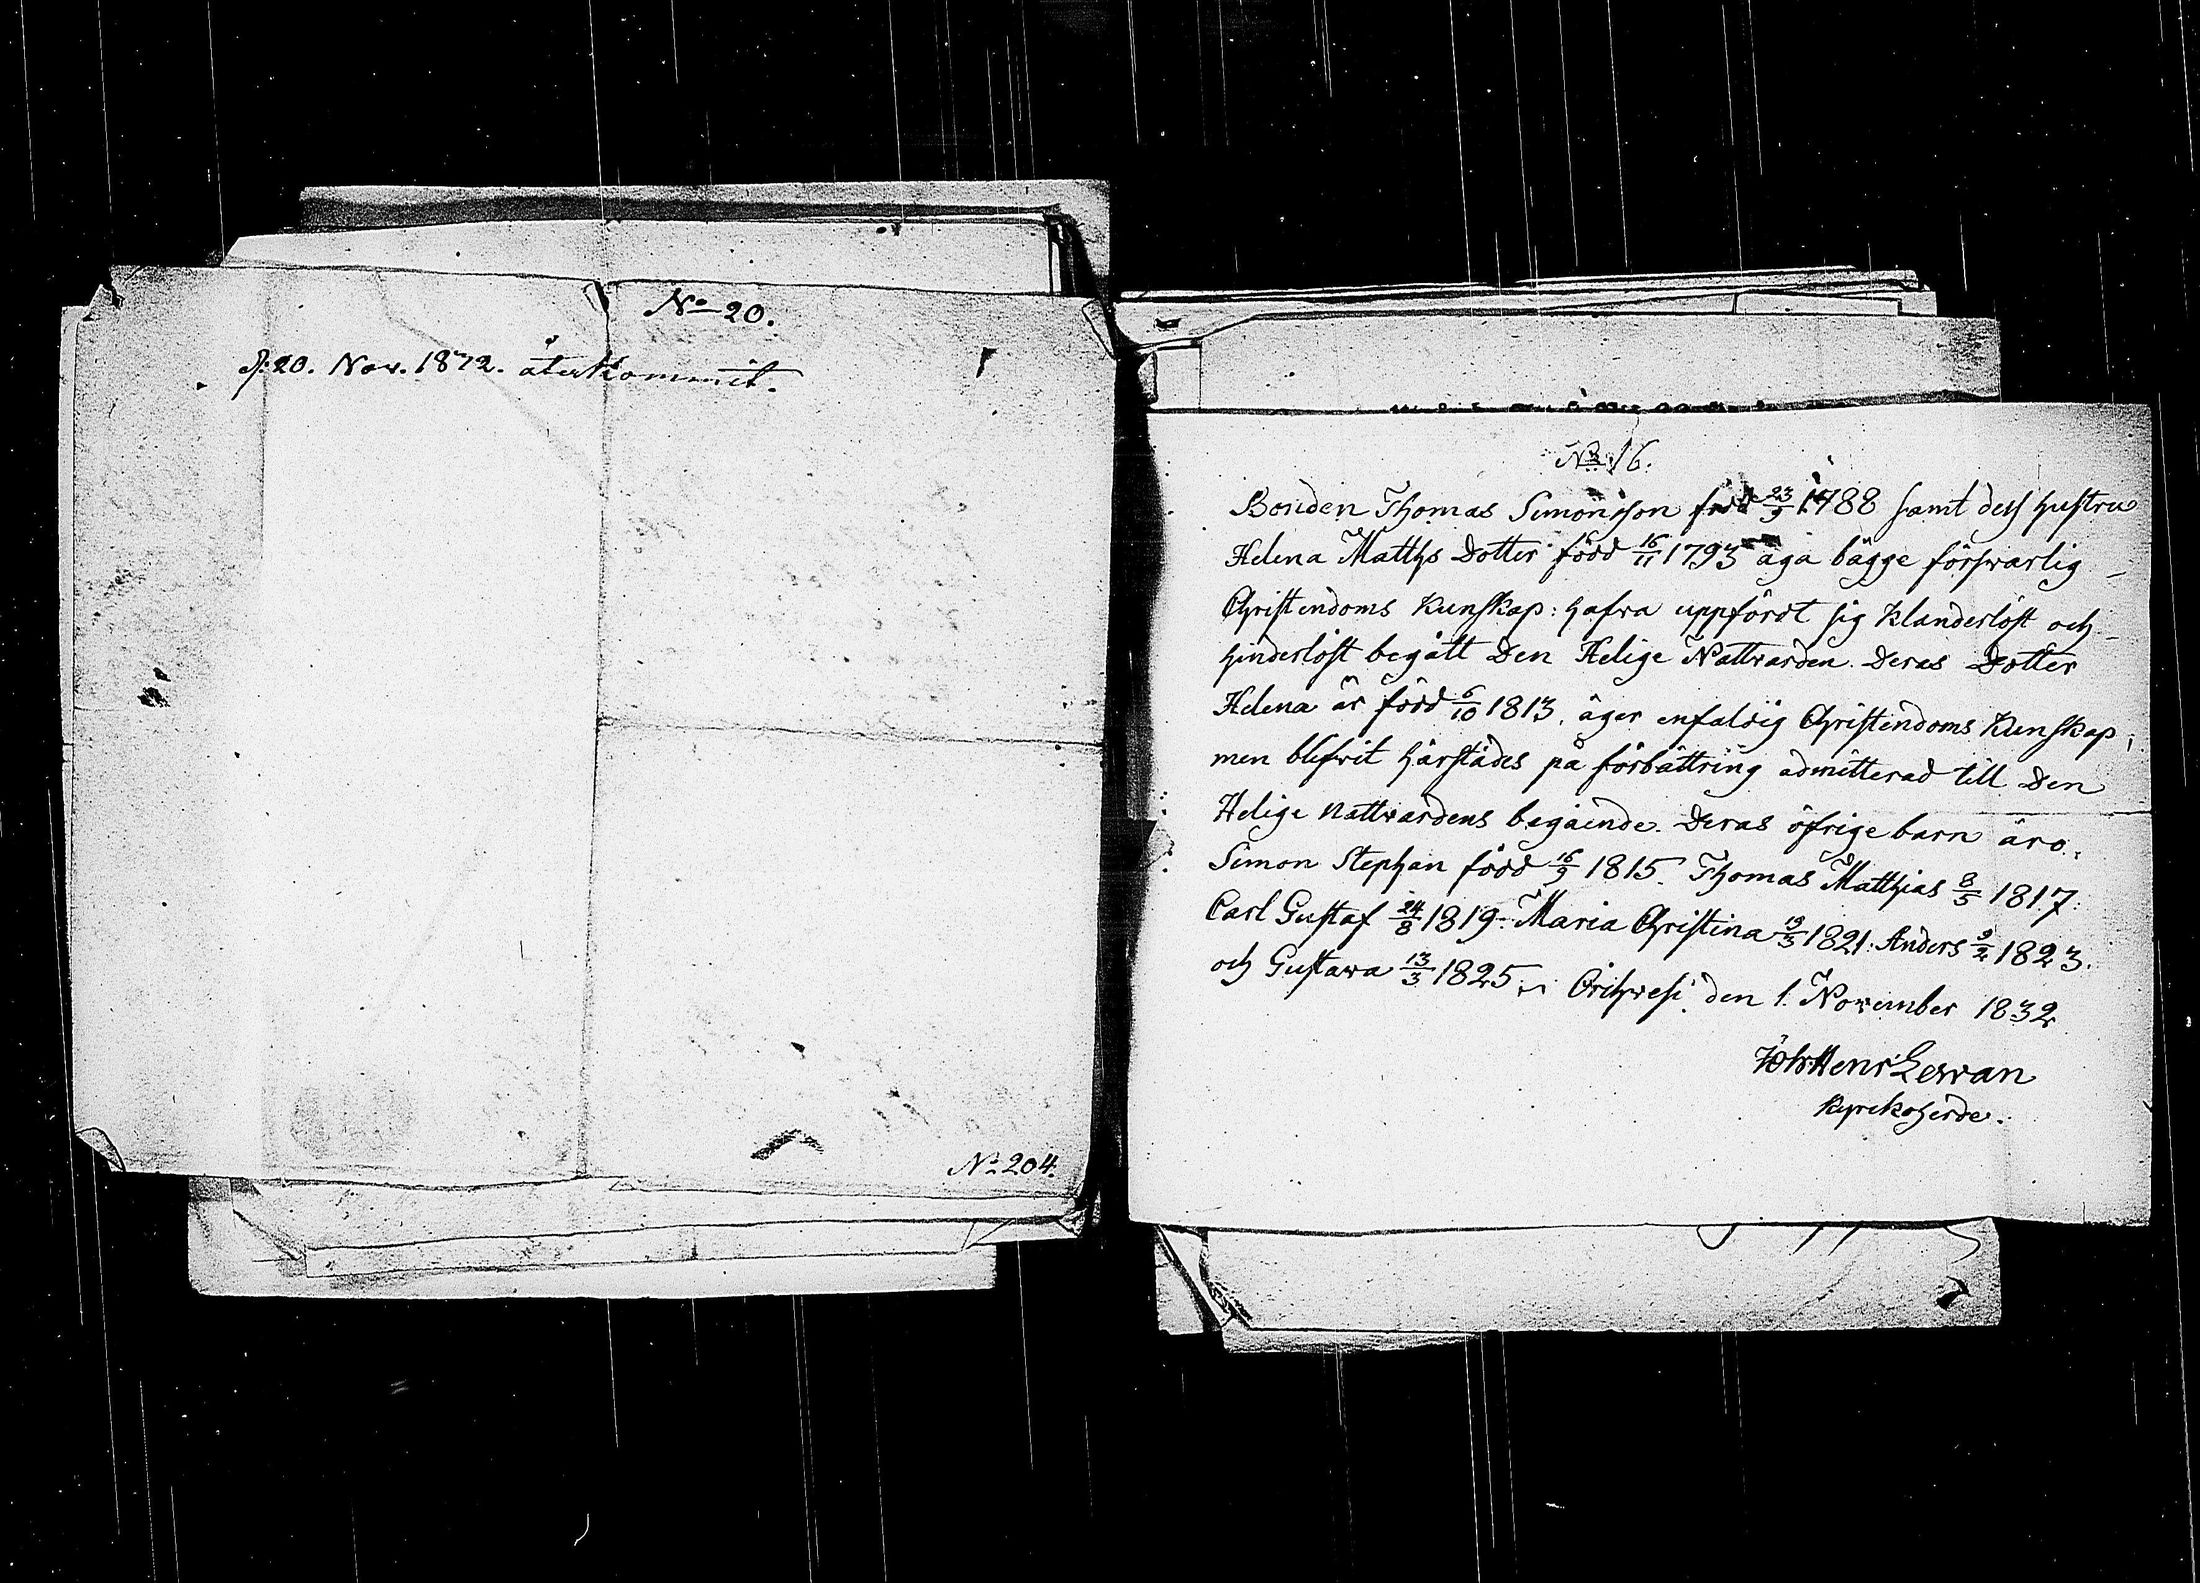 No 20.
d. 20. Nov. 1872. återkommit.
No 204.
No 16.
Bonden Thomas Simonsson född 23/9 1788 samt dess hustru
Helena Matths Dotter född 16/11 1793 äga bägge försvarlig
Christendoms Kunskap: hafva uppfördt sig klanderlöst och
hinderlöst begått Den Helige Nattvarden. Deras Dotter
Helena är född 6/10 1813, äger enfaldig Christendoms Kunskap,
men blifvit härstädes på förbättring admitterad till Den
Helige Nattvardens begående. Deras öfrige barn äro,
Simon Stephan född 16/9 1815. Thomas Matthias 8/5 1817.
Carl Gustaf 24/8 1819. Maria Christina 19/3 1821. Anders 9/2 1823.
och Gustava 13/3 1825. Orihvesi den 1. November 1832
Joh: Henr: Levan
Kyrkoherde.